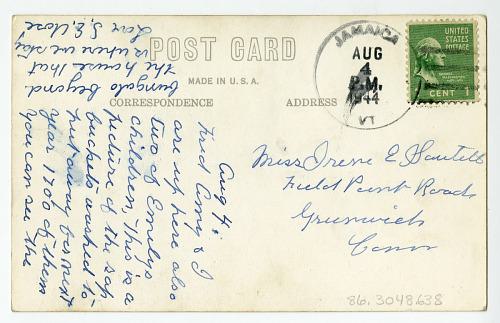 POST CARD
MADE IN U.S.A.
CORRESPONDENCE
ADDRESS
JAMAICA
AUG
4
P.M.
1944
VT
UNITED
STATES
POSTAGE
CENT 1
Aug 4,
Fred Amy & I
are up here also
two of Emilys
children, This is a
picture of the sap
buckets washed to
put away for next
year 1700 of them
You can see the
bungalo beyond
the house that
is where we stay
Love S.E.
Miss Irene E
Field Point Road
Greenwich
Conn
86.3048638